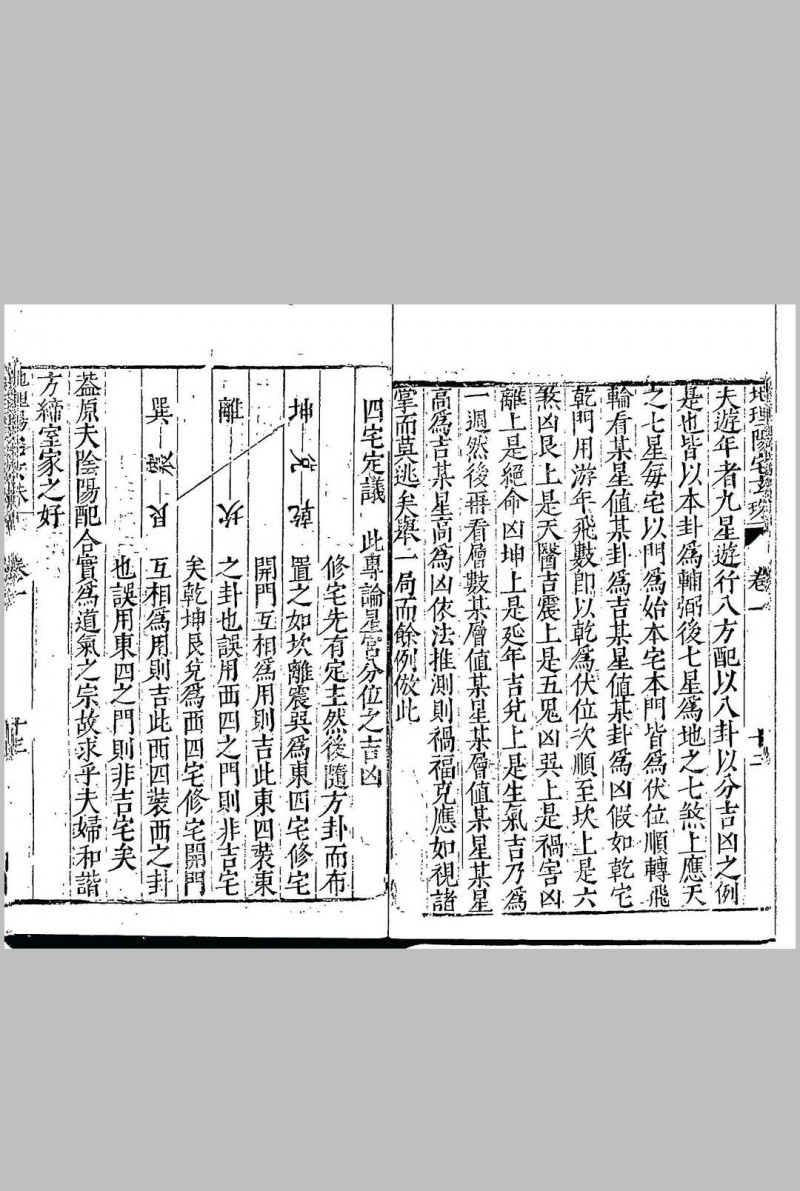 地理陽宅 卷一 十二
夫遊年者九星遊行八方配以八卦以分吉凶之例
是也皆以本卦爲輔弼後七星爲地之七煞上應天
之七星每宅以門爲始本宅本門皆爲伏位順轉飛
輪看某星值某卦爲吉某星值某卦爲凶假如乾宅
乾門用游年飛數即以乾爲伏位次順至坎上是六
煞凶艮上是天醫吉震上是五鬼凶巽上是禍害凶
離上是絕命凶坤上是延年吉兌上是生氣吉乃爲
一週然後再看層數某層值某星某層值某星某星
高爲吉某星高爲凶依法推測則禍福克應如視諸
掌而莫逃矣舉一局而餘例倣此
四宅定議 此專論星宮分位之吉凶
修宅先有定主然後隨方卦而布
坤 兌 乾 置之如坎離震巽爲東四宅修宅
開門互相爲用則吉此東四裝東
離 坎 之卦也誤用西四之門則非吉宅
矣乾坤艮兌爲西四宅修宅開門
巽 震 艮 互相爲用則吉此西四裝西之卦
也誤用東四之門則非吉宅矣
蓋原夫陰陽配合實爲道氣之宗故求乎夫婦和諧
方締室家之好
卷一 十三